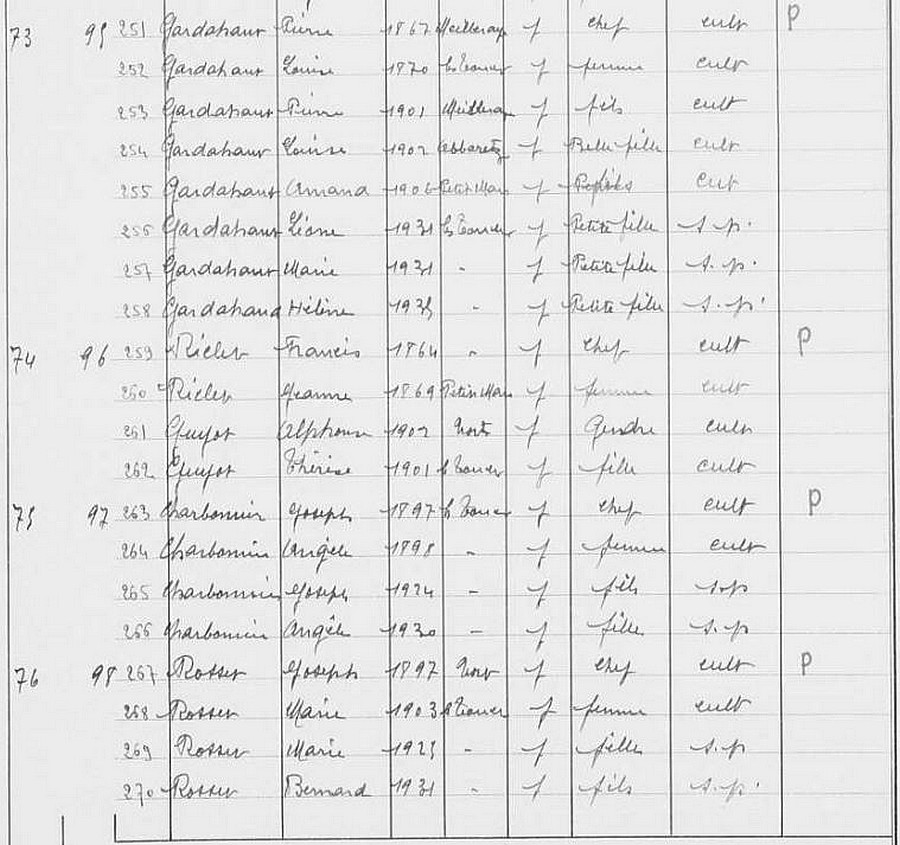 73 95 251 Gardahaut Pierre 1867 Meilleray f chef cult P
252 Gardahaut Louise 1870 les Touches f femme cult
253 Gardahaut Pierre 1901 Meilleray f fils cult
254 Gardahaut Louise 1902 Abbaretz f Belle fille cult
255 Gardahaut Amand 1906 Petit Mars f cult
256 Gardahaut Léone 1931 les Touches f Petite fille s.p.
257 Gardahaut Marie 1931 - f Petite fille s.p.
258 Gardahaud Hélène 1935 - f Petite fille s.p.
74 96 259 Riclet Francis 1864 - f chef cult P
260 Riclet Jeanne 1869 Petit Mars f femme cult
261 Guyot Alphonse 1902 Nort f Gendre cult
262 Guyot Thérèse 1901 les Touches f fille cult
75 97 263 Charbonnier Joseph 1897 les Touches f chef cult P
264 Charbonnier Angèle 1898 - f femme cult
265 Charbonnier Joseph 1924 - f fils s.p
266 Charbonnier Angèle 1930 - f fille s.p
76 98 267 Rosset Joseph 1897 Nort f chef cult P
268 Rosset Marie 1903 les Touches f femme cult
269 Rosset Marie 1925 - f fille s.p
270 Rosset Bernard 1931 - f fils s.p.